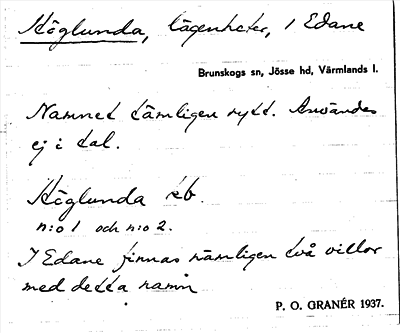 Höglunda, lägenheter, i Edane
Brunskogs sn, Jösse hd, Värmlands l.
Namnet tämligen nytt. Användes
ej i tal.
Höglunda rb.
n:o 1 och n:o 2.
I Edane finnas nämligen två villor
med detta namn
P. O. GRANÉR 1937.